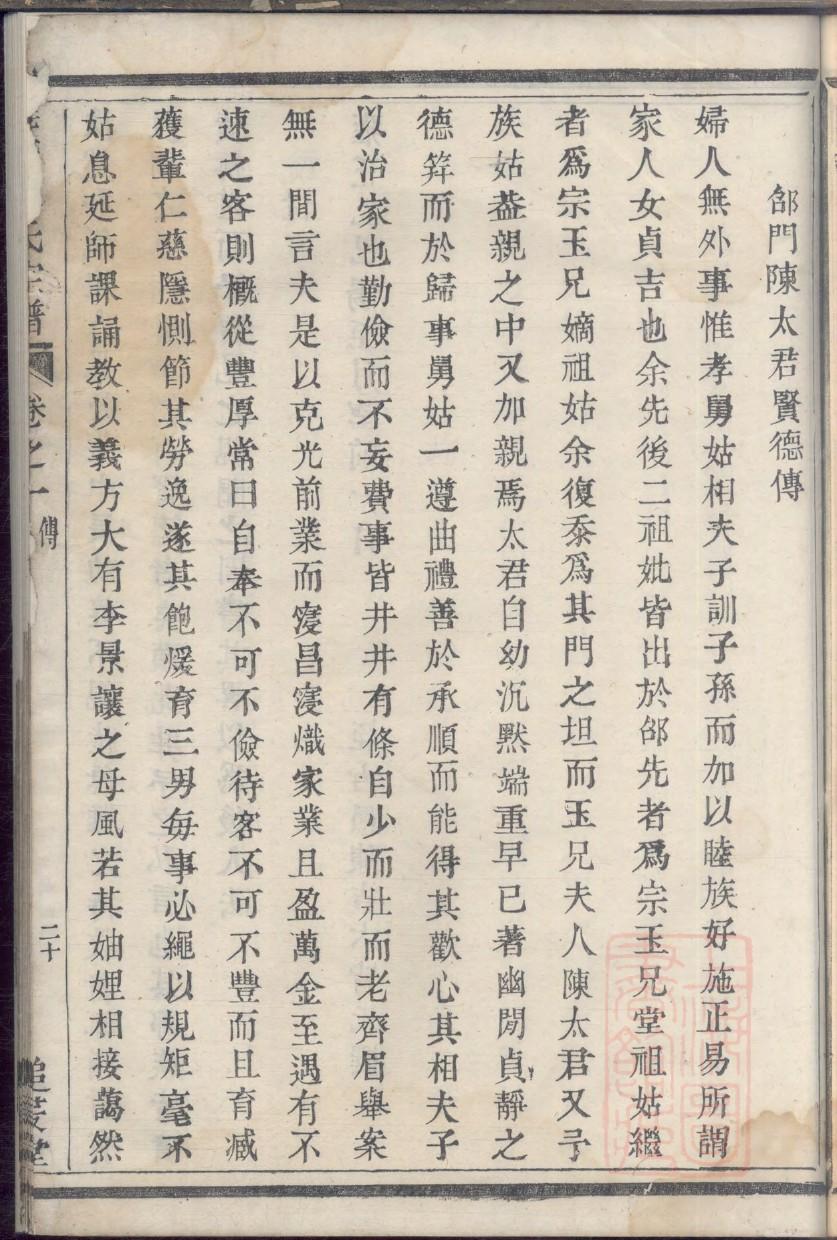 郃門陳太君賢德傳
婦人無外事惟孝舅姑相夫子訓子孫而加以睦族好施正易所謂
家人女貞吉也余先後二祖妣皆出於郃先者爲宗玉兄堂祖姑繼
者爲宗玉兄嫡祖姑余復忝爲其門之坦而玉兄夫人陳太君又予
族姑葢親之中又加親焉太君自幼沉默端重早已著幽閒貞靜之
德笄而於歸事舅姑一遵曲禮善於承順而能得其歡心其相夫子
以治家也勤儉而不妄費事皆井井有條自少而壯而老齊眉舉案
無一間言夫是以克光前業而寖昌寖熾家業且盈萬金至遇有不
速之客則概從豐厚常曰自奉不可不儉待客不可不豐而且育臧
獲輩仁慈隱惻節其勞逸遂其飽煖育三男每事必繩以規矩毫不
姑息延師課誦教以義方大有李景讓之母風若其妯娌相接藹然
氏宗譜 卷之一 傳 二十